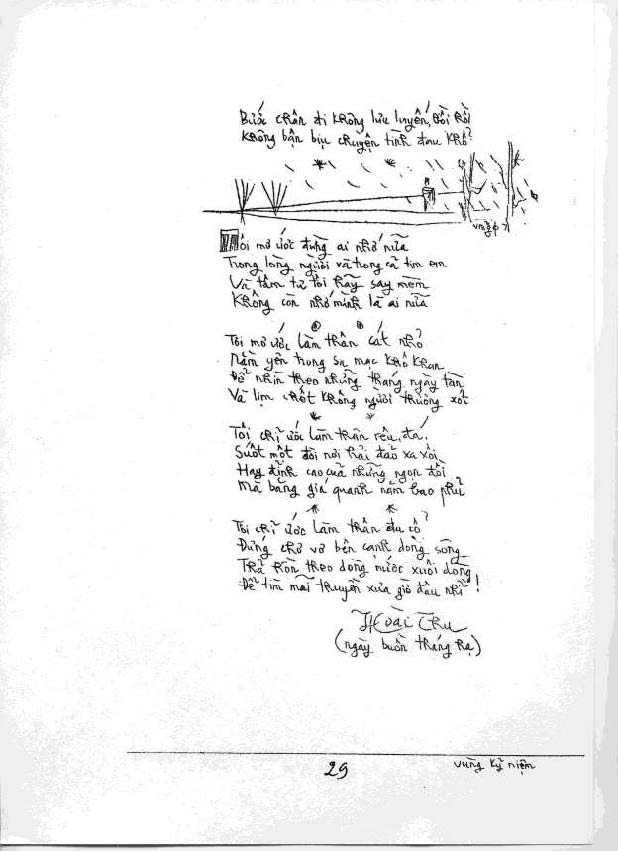 Bước chân đi không lưu luyến, bồi hồi
Không bận bịu chuyện tình đau khổ
Tôi mơ ước đừng ai nhớ nữa
Trong lòng người và trong cả tim em
Và tâm tư tôi hãy say mềm
Không còn nhớ mình là ai nữa
Tôi mơ ước làm thân cát nhỏ
Nằm yên trong sa mạc khô khan
Để nhìn theo những tháng ngày tàn
Và lịm chết không người thương xót
Tôi chỉ ước làm thân rêu, đá,
Suốt một đời nơi hải đảo xa xôi
Hay đỉnh cao của những ngọn đồi
Mà băng giá quanh năm bao phủ
Tôi chỉ ước làm thân đa cổ
Đứng chơ vơ bên cạnh dòng sông
Thả hồn theo dòng nước xuôi dòng
Để tìm mãi thuyền xưa giờ đâu nhỉ!
Hoài Thu
(ngày buồn tháng hạ)
29
vùng kỷ niệm